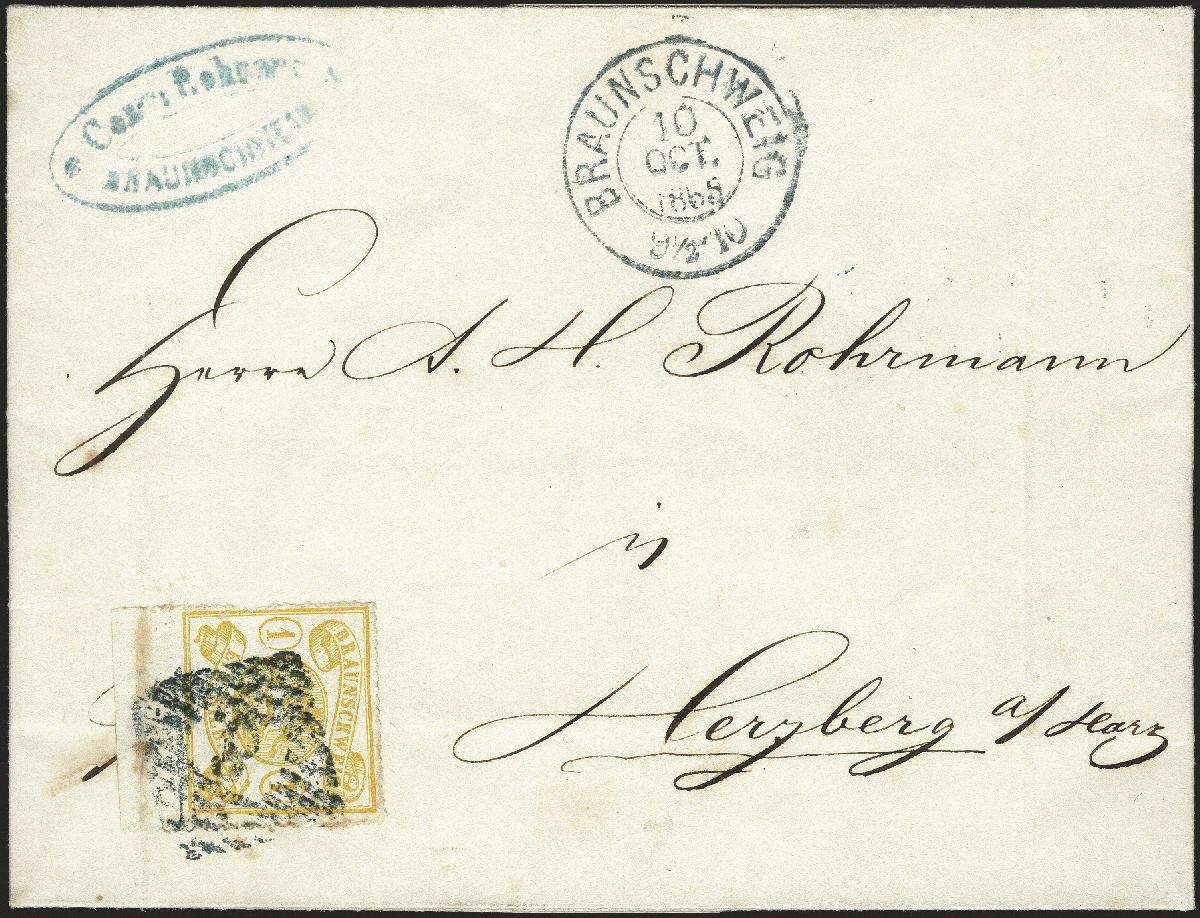 BRAUNSCHWEIG
10
OCT.
1865
9½-10
Herrn A. H. Rohrmann
in
Herzberg a/Harz
1
BRAUNSCHWEIG